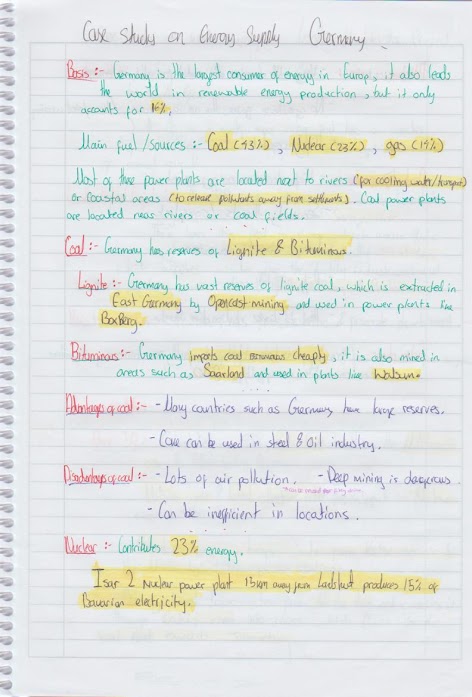 Case Study on Energy Supply Germany
Basis:- Germany is the largest consumer of energy in Europ, it also leads
the world in renewable energy production, but it only
accounts for 16%.
Main fuel/sources :- Coal (43%), Nuclear (23%), gas (14%)
Most of these power plants are located next to rivers (for cooling water/transport)
or Coastal areas (to release pollutants away from settlements). Coal power plants
are located near rivers or coal fields.
Coal:- Germany has reserves of Lignite & Bituminous.
Lignite:- Germany has vast reserves of lignite coal, which is extracted in
East Germany by Opencast mining, and used in power plants like
BoxBerg.
Bituminous:- Germany imports coal cheaply, it is also mined in
areas such as Saarland and used in plants like Walsum.
Advantages of coal:- - Many countries such as Germany have large reserves.
- Can be used in steel & Oil industry.
Disadvantages of coal :- - Lots of air pollution. - Deep mining is dangerous
- Can be inefficient in locations.
Nuclear:- Contributes 23% energy.
Isar 2 Nuclear power plant 13km away from produces 15% of
Bavarian electricity.